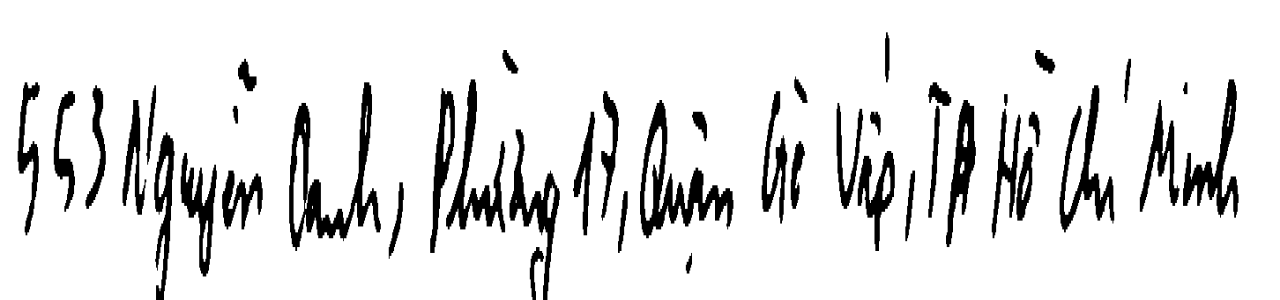 553 Nguyễn Oanh, Phường 17, Quận Gò Vấp, TP Hồ Chí Minh